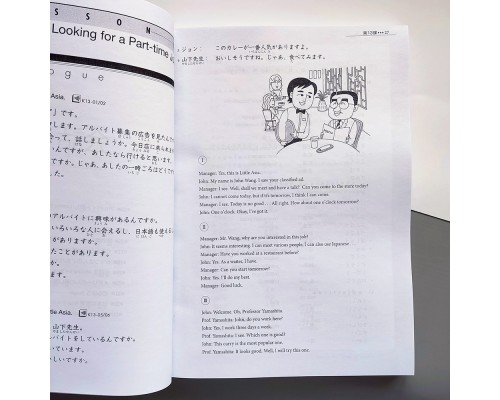 SSON
Looking for a Part-time
ogue
Asia. K13-01/02
です。
します。アルバイト募集の広告を見たんで
会って、話しましょうか。今日店に来られま
いんですが、あしたなら行けると思います。
ですか。じゃあ、あしたの一時ごろはどうで
す。
アルバイトに興味があるんですか。
いろいろな人に会えるし、日本語も使え
がありますか。
たことがあります。
か。
ます。
tle Asia. K13-05/06
山下先生。
バイトをしているんですか。
いています。
いしいんですか。
第13課 37
ジョン： このカレーが一番人気がありますよ。
山下先生： おいしそうですね。じゃあ、食べてみます。
I
Manager: Yes, this is Little Asia.
John: My name is John Wang. I saw your classified ad.
Manager: I see. Well, shall we meet and have a talk? Can you come to the store today?
John: I cannot come today, but if it's tomorrow, I think I can come.
Manager: I see. Today is no good . . . . All right. How about one o'clock tomorrow?
John: One o'clock. Okay, I've got it.
II
Manager: Mr. Wang, why are you interested in this job?
John: It seems interesting. I can meet various people. I can also use Japanese
Manager: Have you worked at a restaurant before?
John: Yes. As a waiter, I have.
Manager: Can you start tomorrow?
John: Yes. I'll do my best.
Manager: Good luck.
III
John: Welcome. Oh, Professor Yamashita.
Prof. Yamashita: John, do you work here?
John: Yes. I work three days a week.
Prof. Yamashita: I see. Which one is good?
John: This curry is the most popular one.
Prof. Yamashita: It looks good. Well, I will try this one.